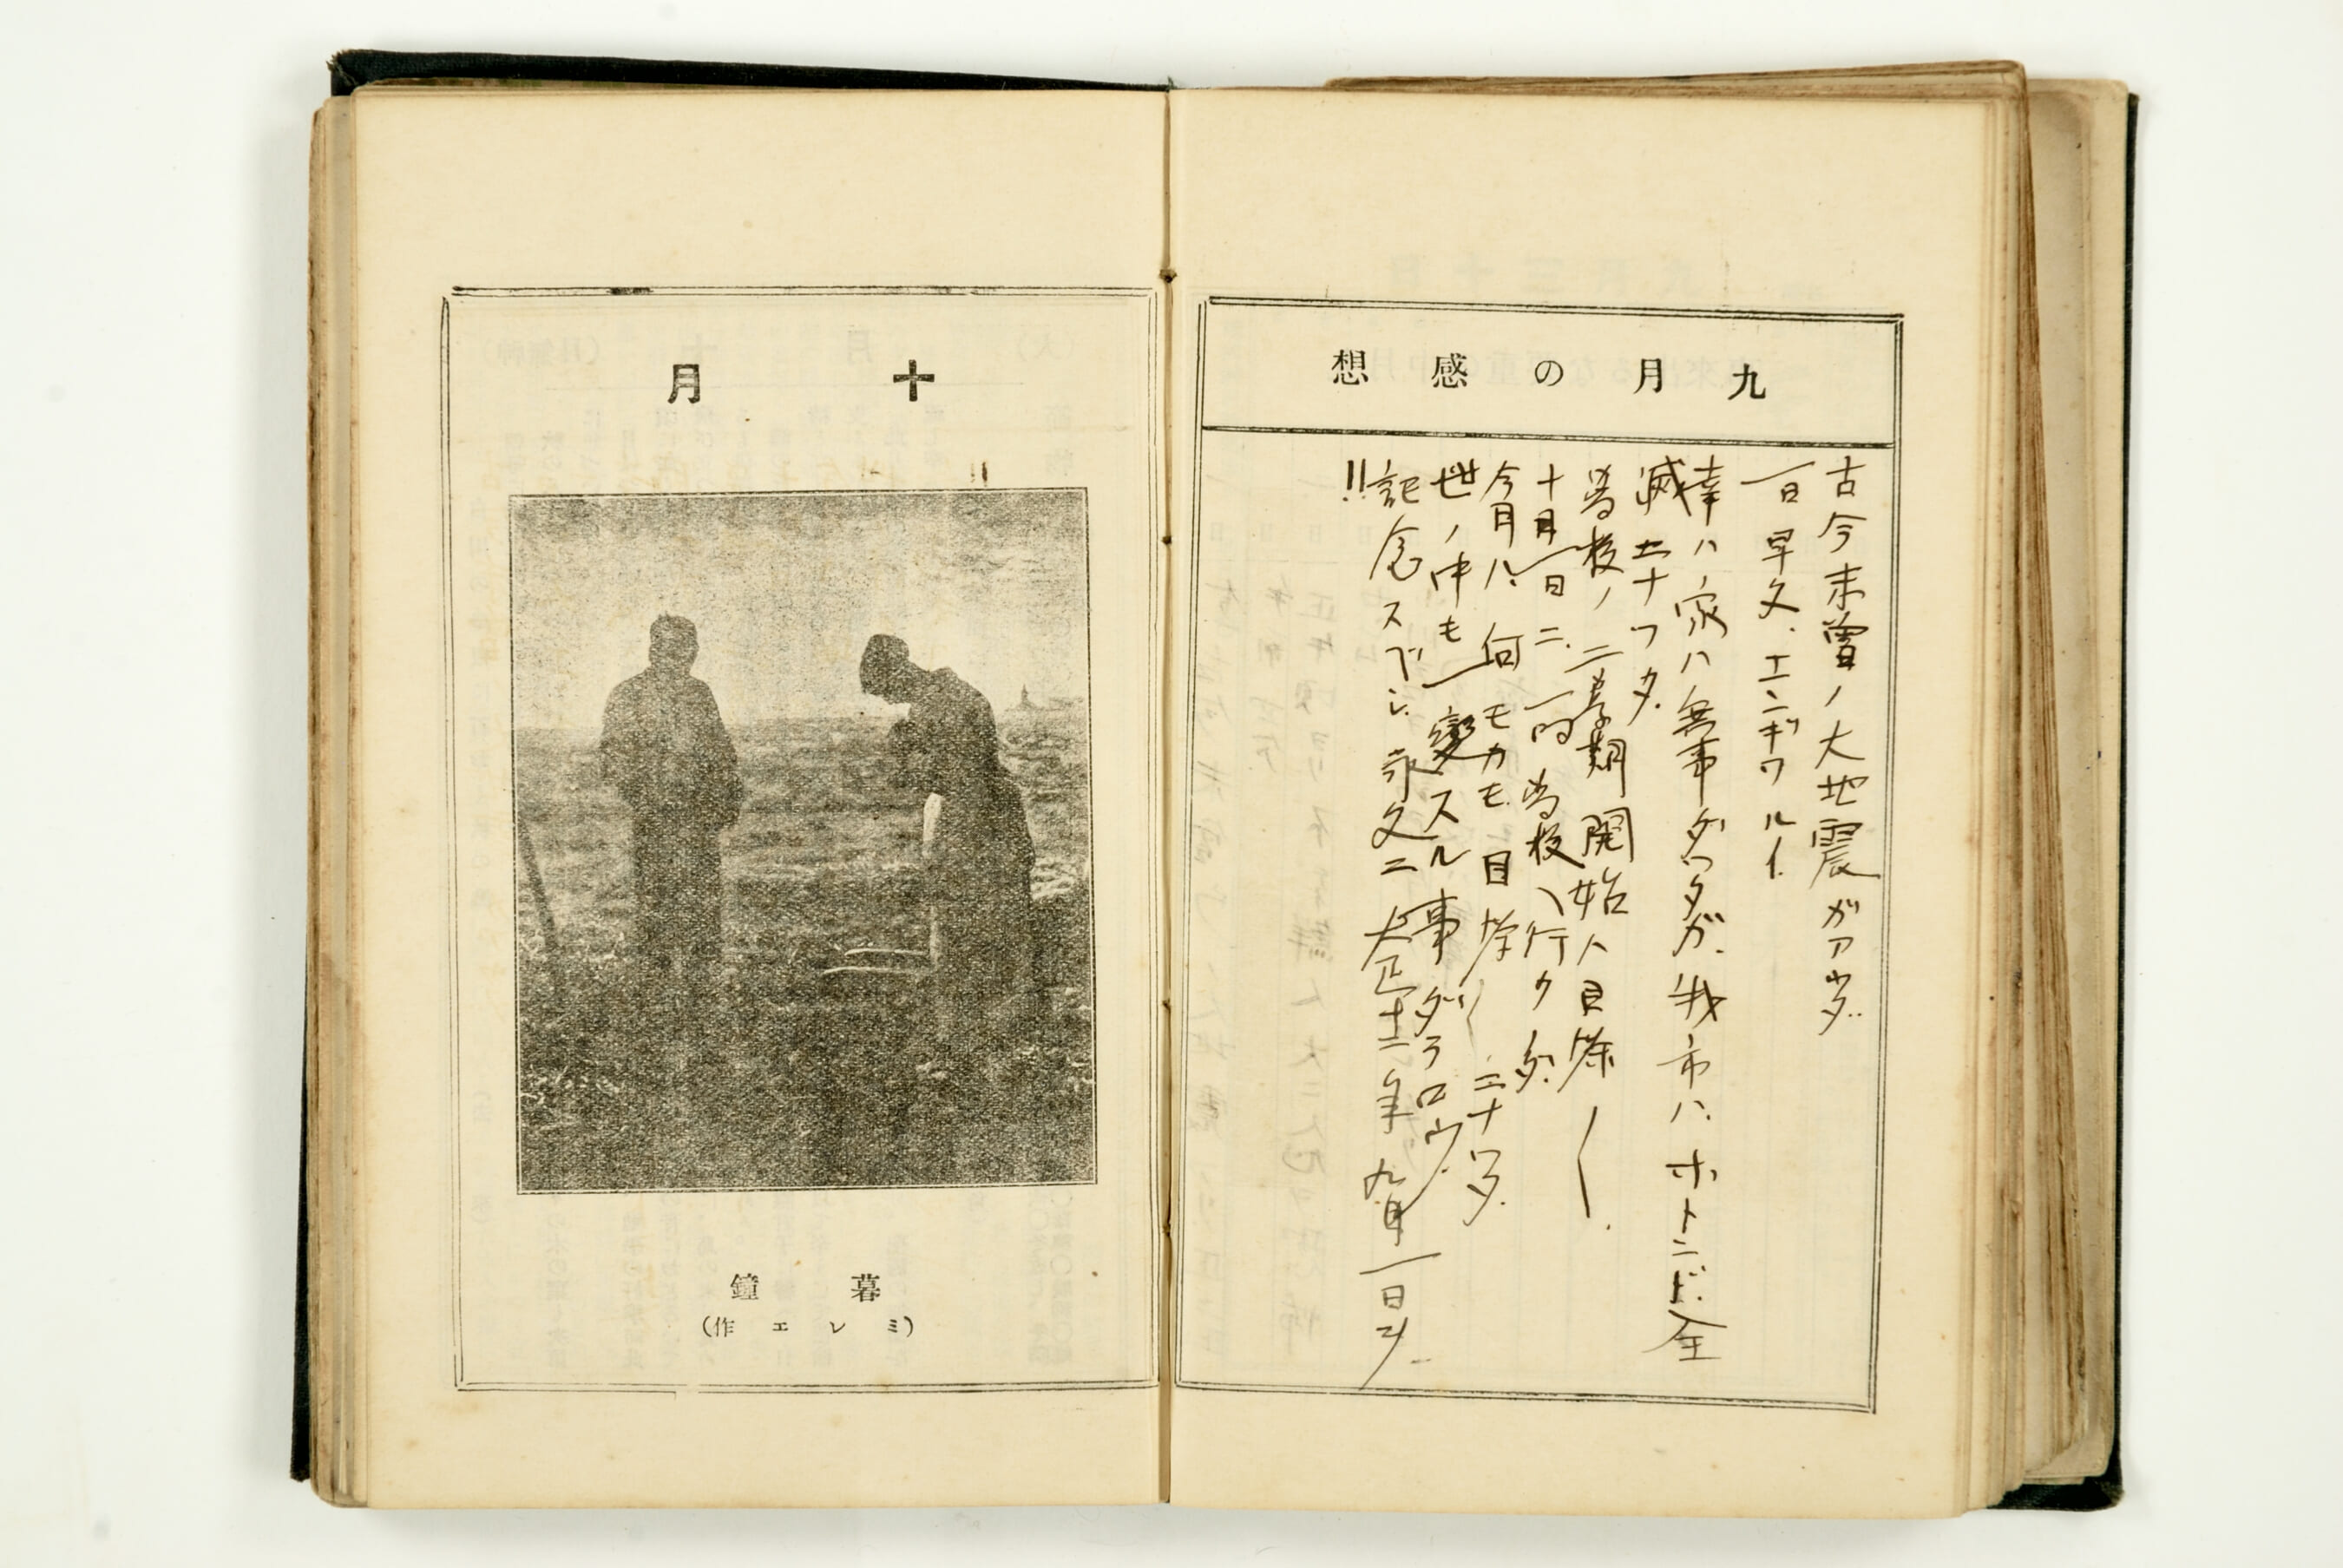 九月の感想
古今未曽ノ大地震ガアッタ
一日早々.エンギワルイ.
幸ハ家ハ無事ダッタガ.我市ハ.ホトンド.全
滅ニナッタ.
当校ノ二学期開始ハ目茶〱.
十月一日ニ.一時当校ヘ行クダ.
今月ハ.何モカモ.目茶〱ニナッタ.
世ノ中も一変スル事ダラロウ.
記念スベシ.永久ニ大正十二年九月一日ヲ.
!!
十月
暮鐘
(ミレエ作)